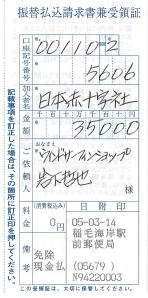 振替払込請求書兼受領証
口座記号番号
00110-2
5606
加入者名
日本赤十字社
金額
千百十万千百十円
35000
ご依頼人
おなまえ
ウインドサーフィンショップ
岩下哲也
料金
(消費税込み)
0円
日附印
05-03-14
稲毛海岸駅
前郵便局
備考
免除
現金払
(05679)
N94220003
記載事項を訂正した場合は、その箇所に訂正印を押してください。
この受領証は、大切に保管してください。